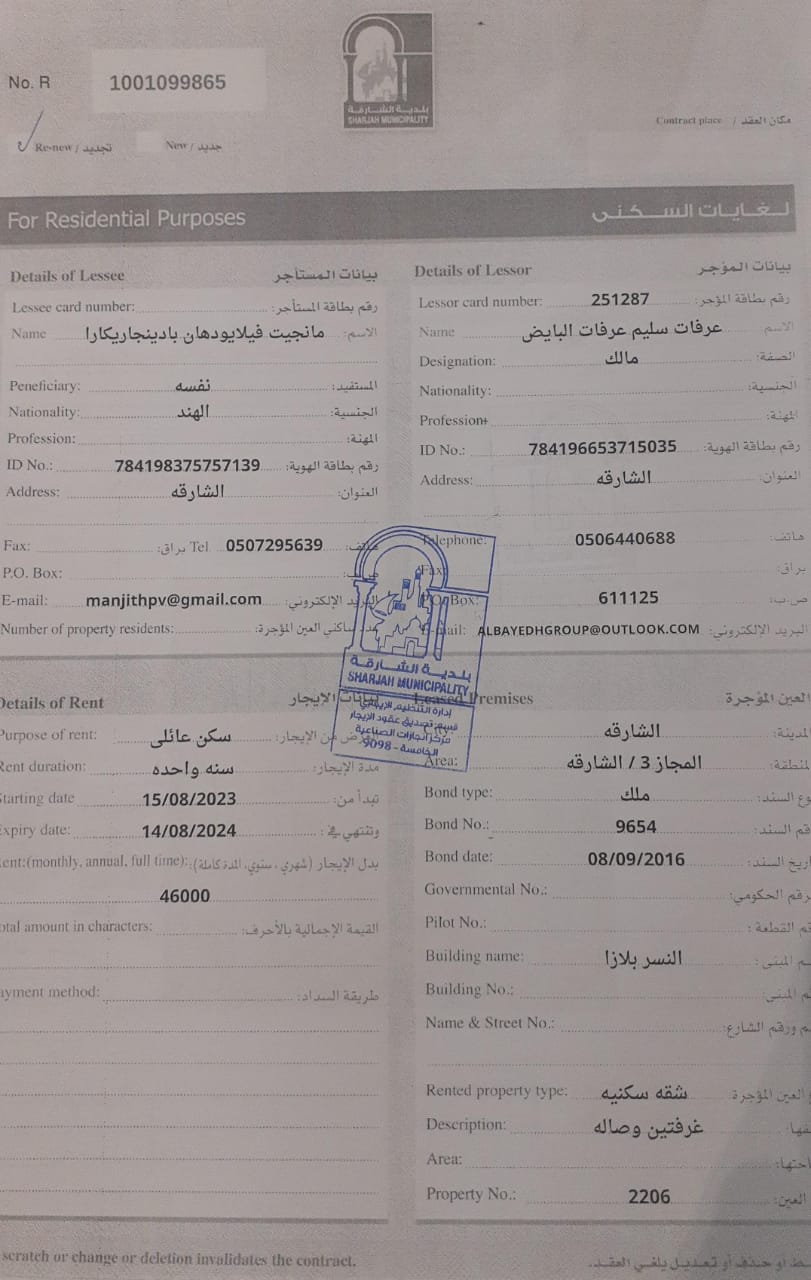 بلدية الشارقة
SHARJAH MUNICIPALITY
No. R 1001099865
Contract place / مكان العقد
Re-new / تجديد New / جديد
For Residential Purposes لغايات السكنى
Details of Lessee بيانات المستأجر
Lessee card number: رقم بطاقة المستأجر:
Name مانجيت فيلايودهان بادينجاريكارا الاسم:
Peneficiary: نفسه المستفيد:
Nationality: الهند الجنسية:
Profession: المهنة:
ID No.: 784198375757139 رقم بطاقة الهوية:
Address: الشارقه العنوان:
Fax: براق: Tel 0507295639 هاتف:
P.O. Box:
E-mail: manjithpv@gmail.com البريد الإلكتروني:
Number of property residents: ساكني العين المؤجرة:
Details of Lessor بيانات المؤجر
Lessor card number: 251287 رقم بطاقة المؤجر:
Name عرفات سليم عرفات البايض الاسم
Designation: مالك الصفة:
Nationality: الجنسية:
Profession: المهنة:
ID No.: 784196653715035 رقم بطاقة الهوية:
Address: الشارقه العنوان:
Telephone: 0506440688 هاتف:
Fax: براق:
P.O. Box: 611125 ص.ب:
E-mail: ALBAYEDHGROUP@OUTLOOK.COM البريد الإلكتروني:
بلدية الشارقة
SHARJAH MUNICIPALITY
إدارة التنظيم الإيجاري
قسم تصديق عقود الإيجار
مركز انجازات الصناعية
الخامسة - 9098
Details of Rent بيانات الإيجار
Purpose of rent: سكن عائلى من الإيجار:
Rent duration: سنه واحده مدة الإيجار:
Starting date 15/08/2023 تبدأ من:
Expiry date: 14/08/2024 وتنتهي في:
ent:(monthly, annual, full time): بدل الإيجار (شهري، سنوي، المدة كاملة):
46000
otal amount in characters: القيمة الإجمالية بالأحرف:
ayment method: طريقة السداد:
Leased Premises العين المؤجرة
City: الشارقه المدينة:
Area: المجاز 3 / الشارقه المنطقة:
Bond type: ملك وع السند:
Bond No.: 9654 قم السند:
Bond date: 08/09/2016 اريخ السند:
Governmental No.: رقم الحكومي:
Pilot No.: قم القطعة:
Building name: النسر بلازا سم المبنى:
Building No.: قم المبنى:
Name & Street No.: م ورقم الشارع:
Rented property type: شقه سكنيه العين المؤجرة:
Description: غرفتين وصاله فها:
Area: احتها:
Property No.: 2206 العين:
scratch or change or deletion invalidates the contract. أو حذف أو تعديل يلغي العقد.